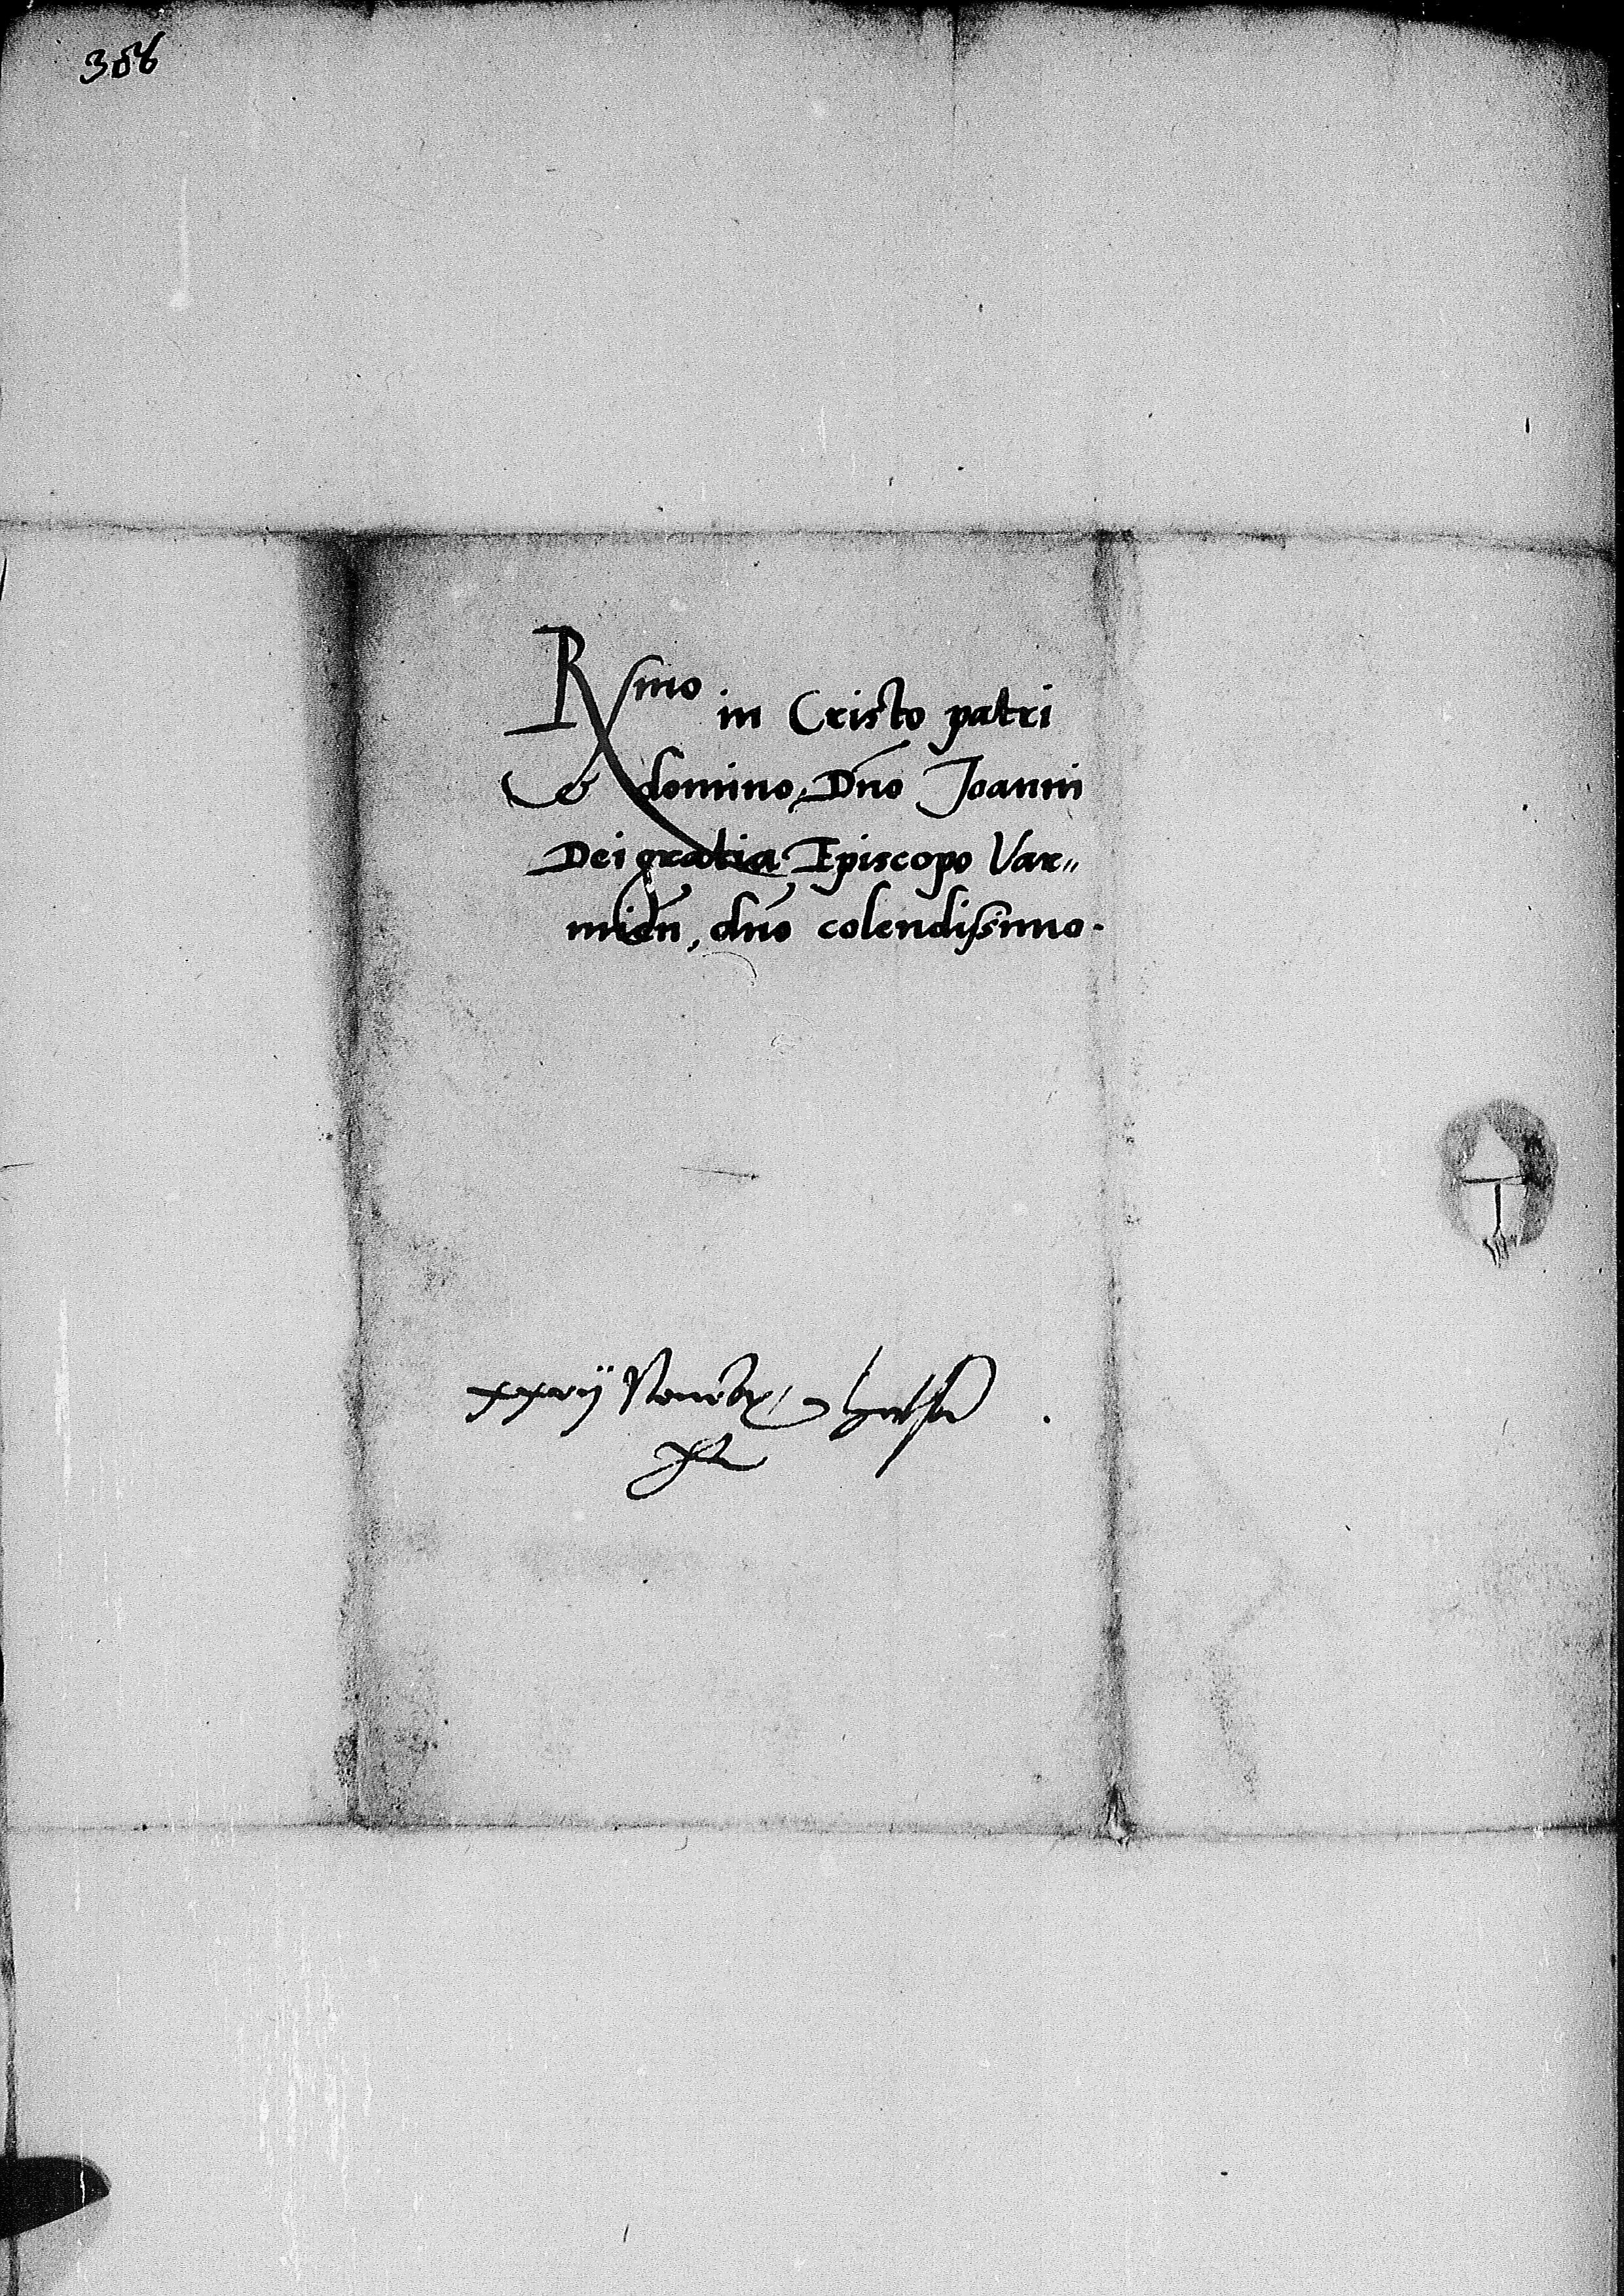 358
Rssmo in Cristo patri
& domino, Dno Joanni
Dei gratia Episcopo Var„
mien, dno colendissimo.
xxvij Novembr